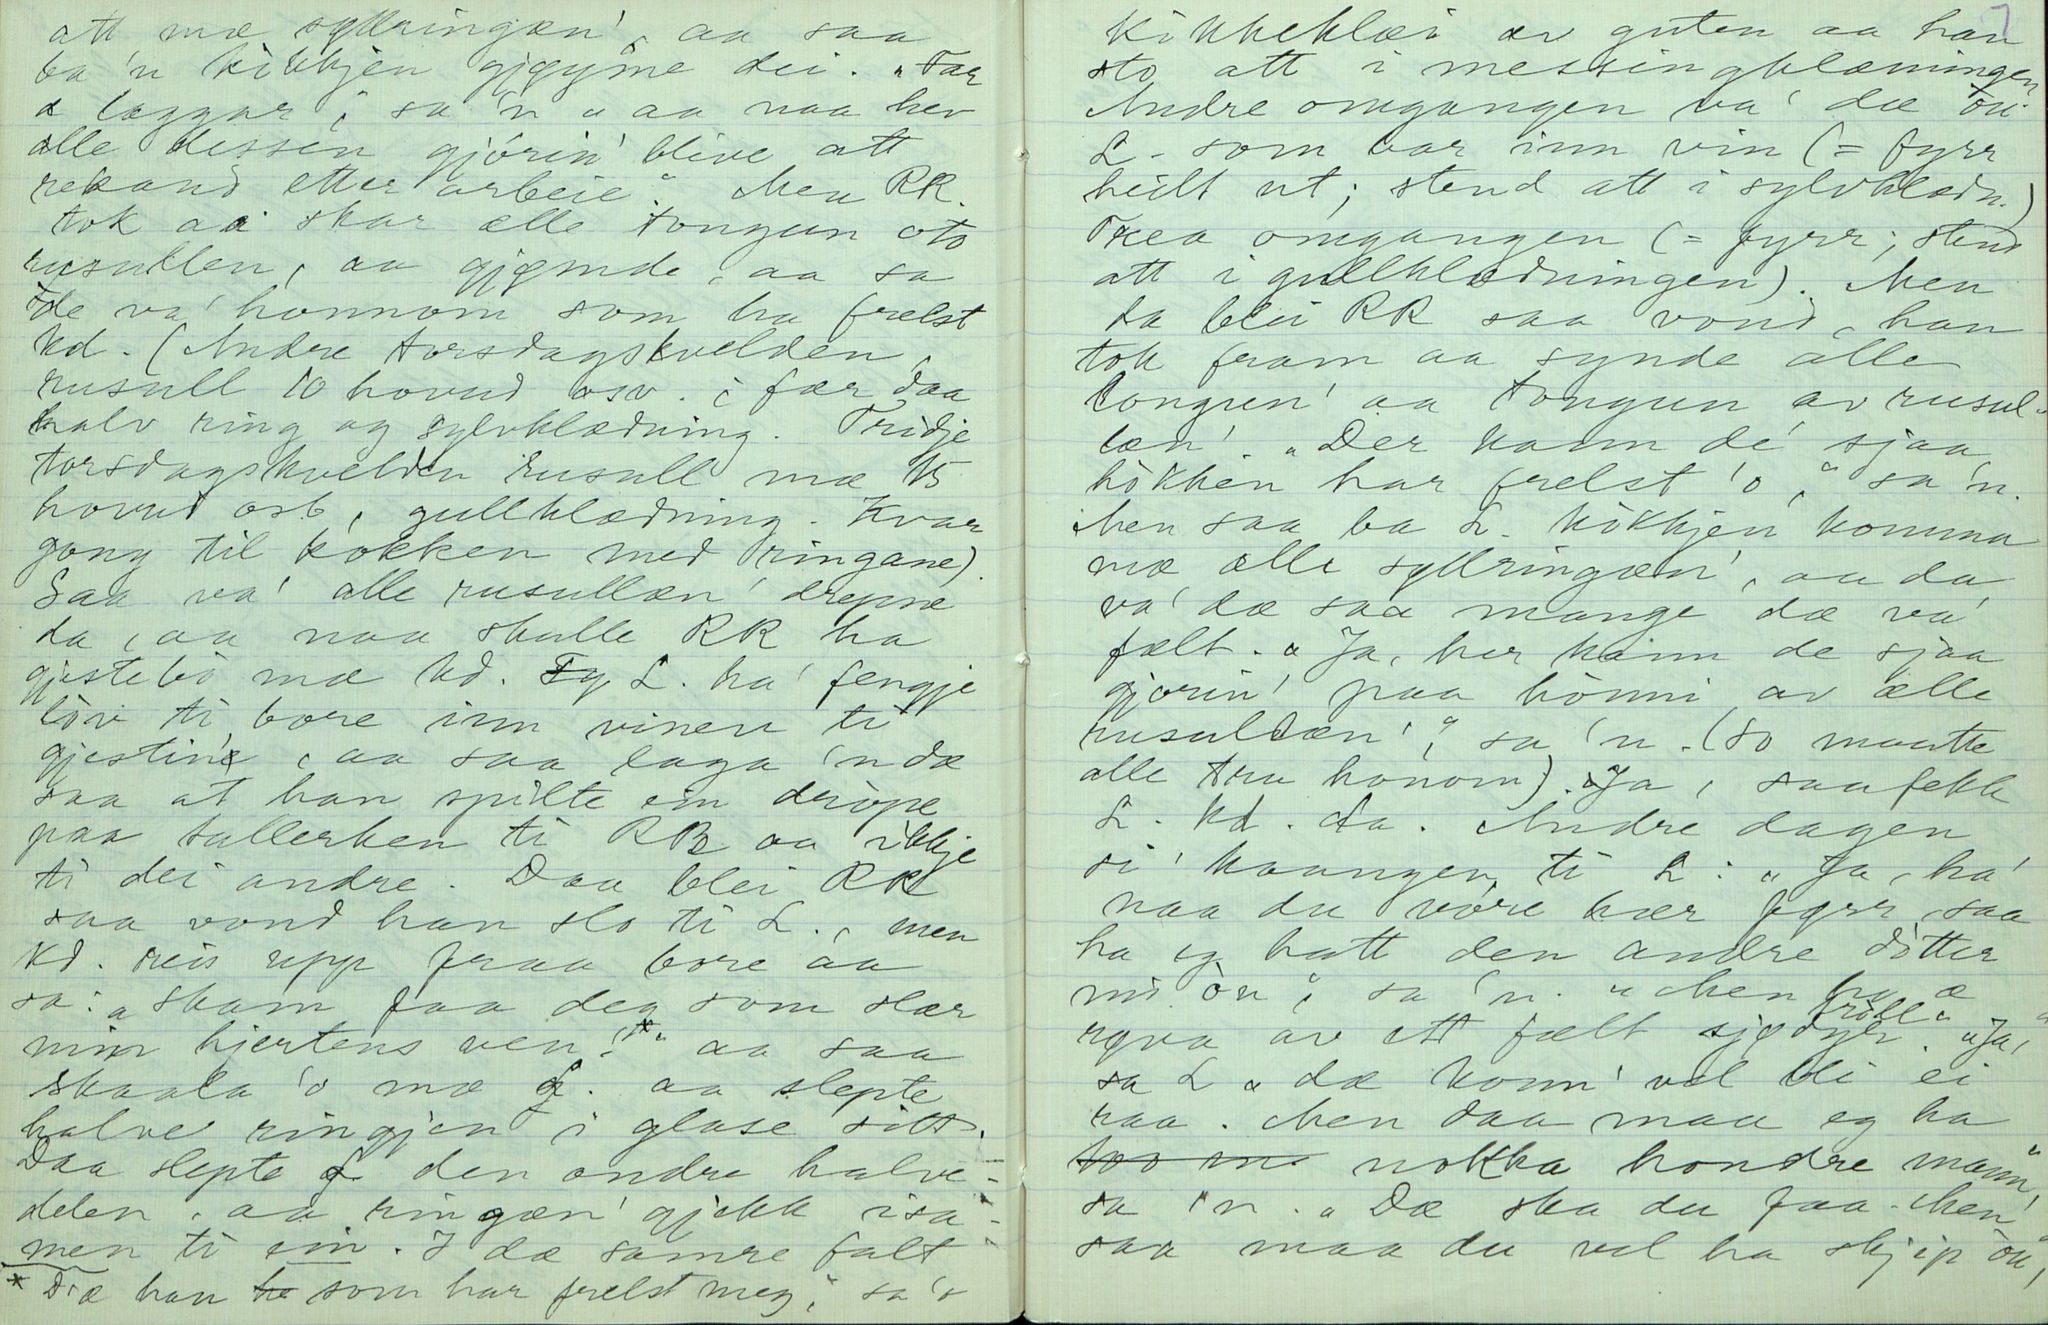 att mæ syllringæn', aa saa
ba 'n kikkjen gjøyme dei. "Far
a laggar", sa 'n "aa naa hev
alle dessen gjórin' blive att
rekand etter arbeie." Men RR.
tok aa skar ælle tongun oto
rusullen, aa gjømde, aa sa
de va' honnom som ha frelst
Kd. (Andre torsdagskvelden,
rusull 10 hovud osv. i fær daa
halv ring og sylvklædning. Tridje
torsdagskvelden rusull mæ 15
hovud osb, gullklædning. Kvar
gong til kokken med ringane).
Saa va' alle rusullæn' drepne
da, aa naa skulle RR ha
gjestebò mæ Kd. L. ha' fengje
lòv ti bære inn vinen ti
gjestin'e, aa saa laga 'n dæ
saa at han spilte ein dròpe
paa tallerken ti RR aa ikkje
ti dei andre. Daa blei RR
saa vond han slo ti L., men
Kd. reis upp fraa bore aa
sa: "skam faa deg som slær
min hjertens ven!*" aa saa
skaala 'o mæ L. aa slepte
halve ringjen i glase sitt.
Daa slepte L den andre halve-
delen, aa ringæn' gjekk isa-
men ti ein. I dæ samre falt
* D'æ han som har frelst meg," sa 'o
7
kikkeklæi av guten aa han
sto att i messingklæningen.
Andre omgangen va' dæ òu
L. som bar inn vin (= fyrr
heilt ut; stend att i sylvklædn.)
Trea omgangen (= fyrr; stend
att i gullklædningen). Men
da blei RR saa vond, han
tok fram aa synde alle
tongun' aa tongun av rusul-
læn'. "Der kann de sjaa
hòkken har frelst 'o," sa 'n.
Men saa ba L. kòkkjen komma
mæ ælle syllringæn', aa da
va' dæ saa mange dæ va'
fælt. "Ja, her kann de sjaa
gjorin' paa hònni av ælle
rusullæn'", sa 'n. (So maatte
alle tru honom). Ja, saa fekk
L. Kd. da. Andre dagen
si' kaangen ti L: "Ja, ha'
naa du vòre hær fyrr, saa
ha eg hatt den andre dòtter
mi òu", sa 'n. "Men ho æ
røva av ett fælt sjødyr tròll". "Ja,"
sa L "dæ konn' vel bli ei
raa. Men daa maa eg ha
nokka hondre mann",
sa 'n. "Dæ ska du faa. Men
saa maa du vel ha skjip òu,